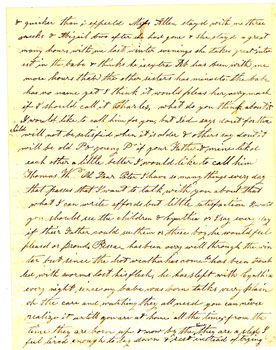 & quicker than I expected Miss Allen stay'd with me three
weeks & Abigail two after she left your & she stay'd a great
many hours with me last winter evenings she takes great inter
est in the babe & thinks he is like Deb has been with me
more hours than the other sisters has minutes. The babe
has no name yet I think it would please her very much
if I should call it Charles, what do you think about it
I would like to call him for you but did say don't for the
child will not be satisfied when it is older & others say don't it
will be old P & young P if your Father & mine liked
each other a little better I would like to call him
Thomas W. M Dear Peter I have so many things every day
that passes that I want to talk with you about that
what I can write affords but little satisfaction. I wish
you should see the children & Cynthia or I say every day
if their Father could see them or these boys he would feel
pleased or proud, Persen has been very well through the win
ter but since the hot weather has come has been troub
led with worms lost his flesh, he has slept with Cynthia
every night since my babe was born talks very plain
oh the care and watching they all need you can never
realize it until you are at home all the time, from the
time they are born up & now by they they are a plag I
feel tired enough to lay down & rest instead of trying